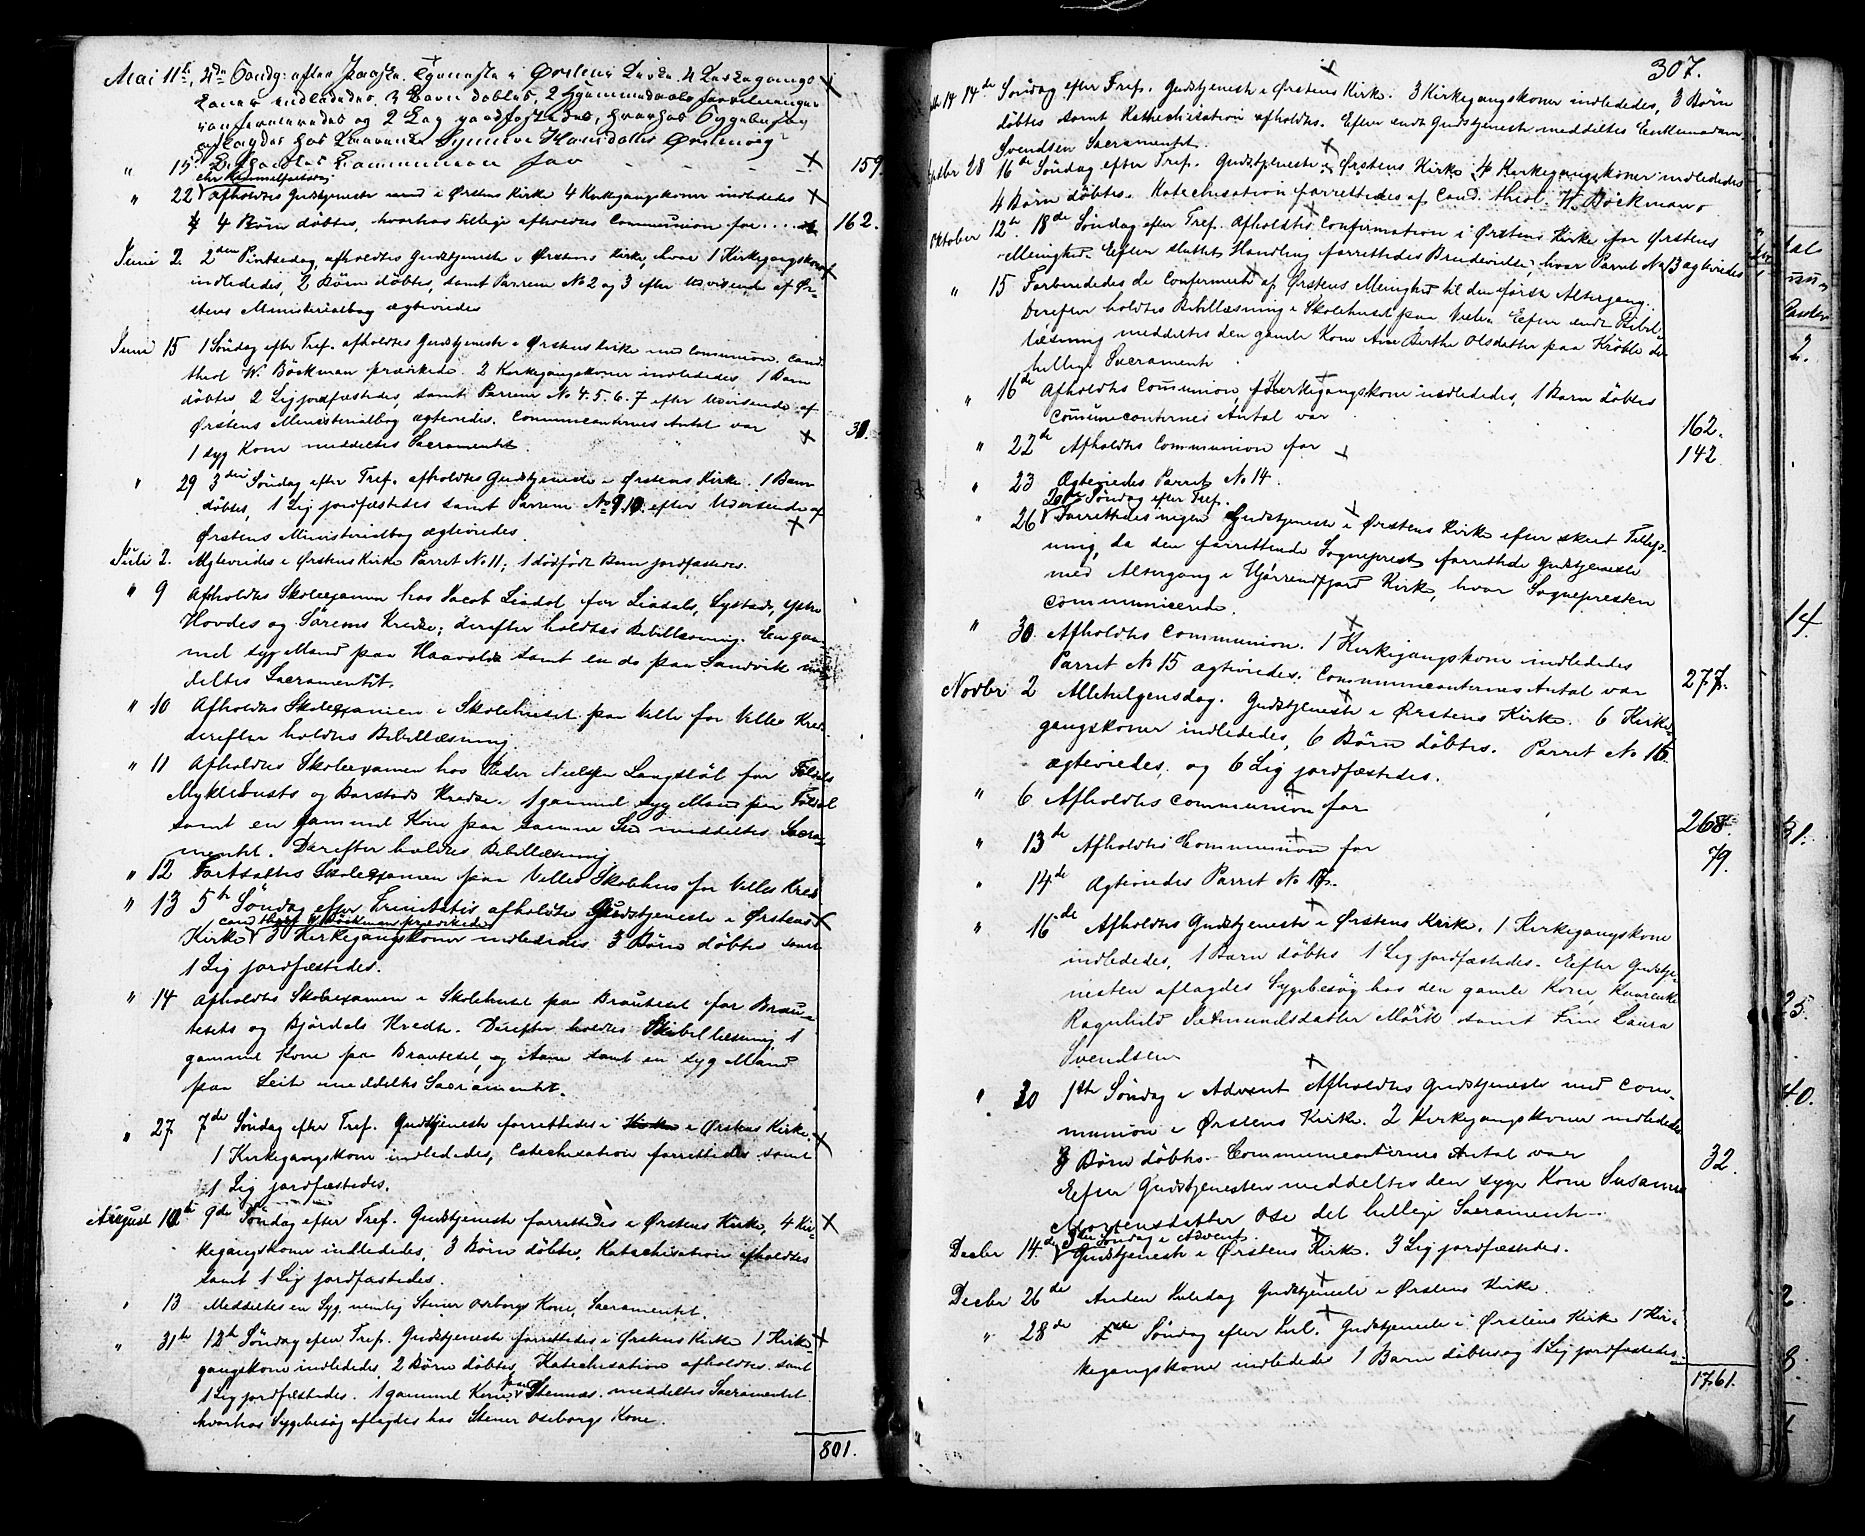 Mai 11te, 4de Søndg: efter Paaske. Tjeneste i Ørstens Kirke. 4 Kirkegangs
koner indlededes. 3 Børn døbtes, 2 Hjemmedaabs
confirmeredes og 2 Lig jordfæstedes, hvorhos Sygebesøg
aflagdes hos
" 15 Afholdtes Communion for 159.
Chr Himmelfartsdag
" 22 afholdtes Gudstjeneste med i Ørstens Kirke 4 Kirkegangskoner indlededes
4 Börn döbtes, hvorhos tillige afholdtes Communion for .... 162.
Juni 2. 2den Pintsedag, afholdtes Gudstjeneste i Ørstens Kirke, hvor 1 Kirkegangskone
indlededes, 2 Börn döbtes, samt Parrene No 2 og 3 efter Udvisende af Ør-
stens Ministerialbog ægteviedes
Juni 15 1 Söndag efter Tref. afholdtes Gudstjeneste i Ørstens Kirke med Communion, Cand.
theol W. Böckman prædikede. 2 Kirkegangskoner indlededes. 1 Barn
döbtes 2 Lig jordfæstedes, samt Parrene No 4. 5. 6. 7 efter Udvisende af
Ørstens Ministerialbog ægteviedes. Communicanternes Antal var 30.
1 syg Kone meddeltes Sacramentet.
" 29 3die Söndag efter Tref. afholdtes Gudstjeneste i Ørstens Kirke. 1 Barn
döbtes, 1 Lig jordfæstedes samt Parrene No 9. 10. efter Udvisende af
Ørstens Ministerialbog ægteviedes.
Juli 2. Ægteviedes i Ørstens Kirke Parret No 11; 1 dödfödt Barn jordfæstedes.
" 9 Afholdtes Skoleexamen hos Jacob Liadal, for Liadals, Systads, Ytre
Hovdes og Sörems Kredse; derefter holdtes Bibellæsning. En gam-
mel syg Mand paa Haavolds samt en do paa Sandvik med-
deltes Sacramentet.
" 10 Afholdtes Skoleexamen i Skolehuset paa Velle for Velles Kreds
derefter holdtes Bibellæsning.
" 11 Afholdtes Skoleexamen hos Peder Nielsen Langslöb for Fölsdals
Myklebusts og Barstads Kredse. 1 gammel syg Mand paa Folsdal
samt en gammel Kone paa samme Sted meddeltes Sacra-
mentet. Derefter holdtes Bibellæsning
" 12 Fortsattes Skoleexamen paa Velles Skolehus for Velles Kreds
" 13 5te Söndag efter Trinitatis afholdtes Gudstjeneste i Ørstens
cand theol W Böckman prædikede
Kirke 3 Kirkegangskoner indlededes 3 Börn döbtes samt
1 Lig jordfæstedes.
" 14 Afholdtes Skoleexamen i Skolehuset paa Brauteset for Brau-
tesets og Björdals Kredse. Derefter holdtes Bibellæsning, 1
gammel Kone paa Brauteset, og Aam samt en syg Mand
paa Leit meddeltes Sacramentet.
" 27 7de Söndag efter Tref. Gudstjeneste forrettedes i Ørstens Kirke.
1 Kirkegangskone indlededes, Catechisation forrettedes samt
1 Lig jordfæstedes.
August 10de 9de Söndag efter Tref. Gudstjeneste forrettedes i Ørstens Kirke, 4 Kir-
kegangskoner indlededes, 3 Börn döbtes, Katechisation afholdtes
samt 1 Lig jordfæstedes.
" 13 Meddeltes en Syg, nemlig Stener Aseborgs Kone, Sacramentet.
" 31te 12te Söndag efter Tref. Gudstjeneste forrettedes i Ørstens Kirke 1 Kirke-
gangskone indlededes, 2 Börn döbtes, Katechisation afholdtes samt
1 Lig jordfæstedes. 1 gammel Kone paa Stennæs meddeltes Sacramentet
hvorhos Sygebesög aflagdes hos Stener Aseborgs Kone.
801.
307.
14 14de Söndag efter Tref. Gudstjeneste i Ørstens Kirke. 3 Kirkegangskoner indlededes, 3 Börn
döbtes samt Kathechisation afholdtes. Efter endt Gudstjeneste meddeltes Enkemadam
Svendsen Sacramentet.
Septbr 28 16de Söndag efter Tref. Gudstjeneste i Ørstens Kirke 4 Kirkegangskoner indlededes
4 Börn döbtes. Katechisation forrettedes af Cand. theol. W. Böckman.
Oktober 12te 18de Söndag efter Tref. Afholdtes Confirmation i Ørstens Kirke for Ørstens
Menighed. Efter sluttet Handling forrettedes Brudevielse, hvor Parret No 13 ægteviedes
" 15 Forberededes de Confirmerede af Ørstens Menighed til den förste Altergang.
Derefter holdtes Bibellæsning i Skolehuset paa Velle. Efter endt Bibel-
læsning meddeltes den gamle Kone Ane Berthe Olsdatter paa Kröble det
hellige Sacramente.
" 16de Afholdtes Communion, 1 Kirkegangskone indlededes, 1 Barn döbtes
Communicanternes Antal var 162.
" 22de Afholdtes Communion for 142
" 23 Ægteviedes Parret No 14.
20de Söndag efter Tref.
" 26 Forrettedes ingen Gudstjeneste i Ørstens Kirke efter skeet Tillys-
ning, da den forrettende Sogneprest forrettede Gudstjeneste
med Altergang i Hjörrendfjord Kirke, hvor Sognepresten
Communicerede.
" 30. Afholdtes Communion. 1 Kirkegangskone indlededes
Parret No 15 ægteviedes. Communicanternes Antal var 277.
Novbr 2 Allehelgensdag. Gudstjeneste i Ørstens Kirke. 6 Kirke-
gangskoner indlededes, 6 Börn döbtes. Parret No 16
ægteviedes, og 6 Lig jordfæstedes.
" 6 Afholdtes Communion for 268
" 13de Afholdtes Communion for 79.
" 14de Ægteviedes Parret No 17.
" 16de Afholdtes Gudstjeneste i Ørstens Kirke. 1 Kirkegangskone
indlededes, 1 Barn döbtes 1 Lig jordfæstedes. Efter Gudstje-
nesten aflagdes Sygebesög hos den gamle Kone
Ragnhild Sætmundsdatter Mörk samt Frue Laura
Svendsen
" 30 1ste Söndag i Advent Afholdtes Gudstjeneste med Com-
munion i Ørstens Kirke. 2 Kirkegangskoner indlededes
3 Börn döbtes. Communicanternes Antal var 32.
Efter Gudstjenesten meddeltes den syge Kone Susanne
Mortensdatter Ose det hellige Sacramente.
3die Söndag i Advent.
Decbr 14de Gudstjeneste i Ørstens Kirke. 3 Lig jordfæstedes.
Decbr 26de Anden Juledag Gudstjeneste i Ørstens Kirke.
" 28de Söndag efter Jul. Gudstjeneste i Ørstens Kirke 1 Kir-
kegangskone indlededes 1 Barn döbtes og 1 Lig jordfæstedes.
1761.
2.
14.
31.
25.
40.
2
8.